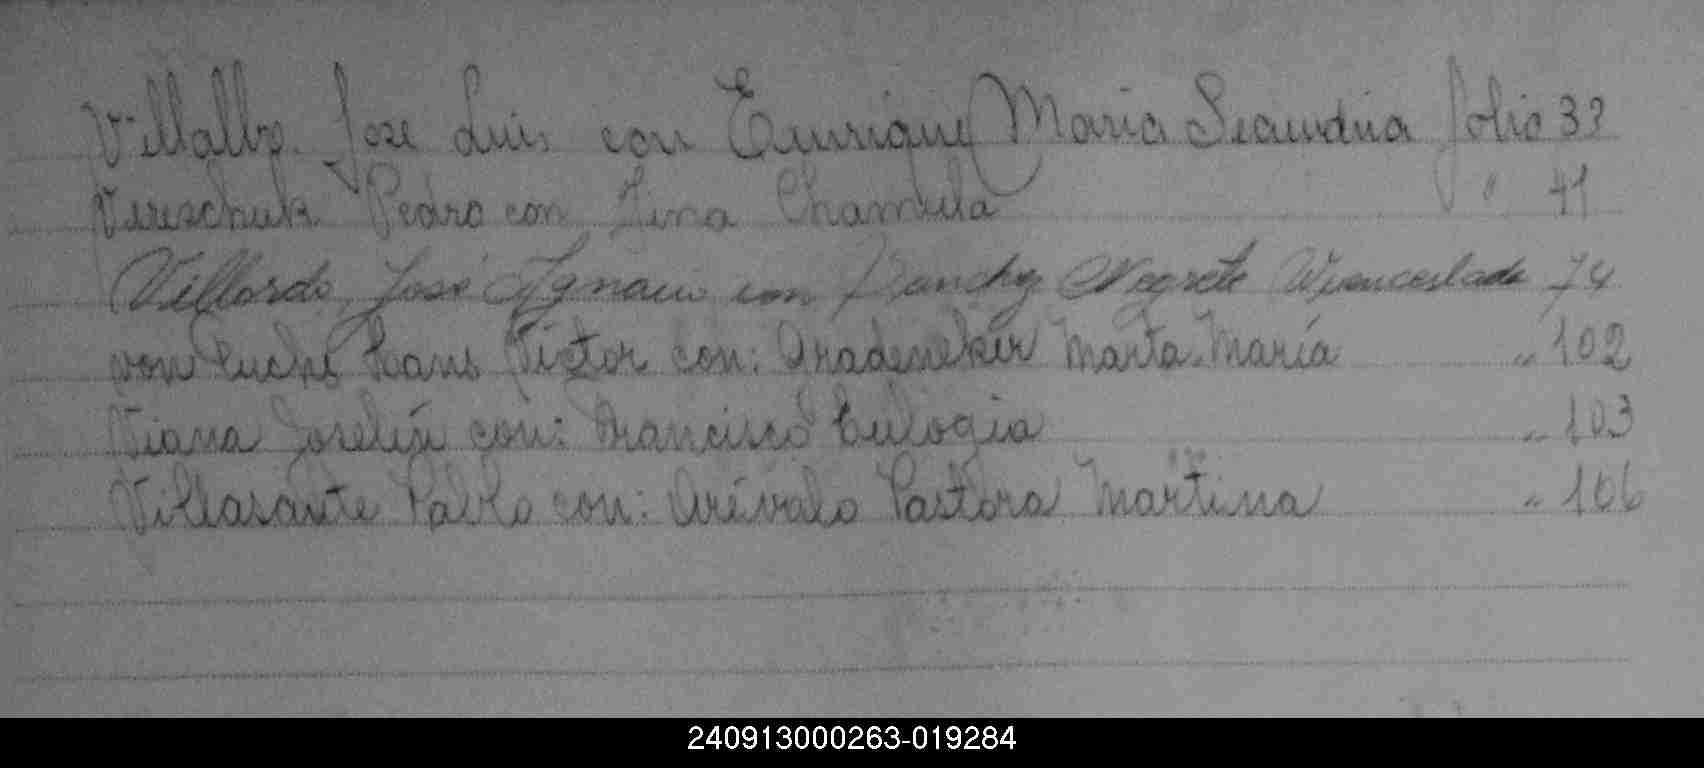 Villalba Jose Luis con Enrrique Maria Secundina folio 33
Vereschuk Pedro con Lina Chamula " 41
Villordo, José Ignacio con Sanchez Negrete Wenceslada 74
von Hans Victor con: Marta María " 102
Viana Joselín con: Francisco Eulogia " 103
Villasante Pablo con: Arévalo Pastora Martina " 106
240913000263-019284